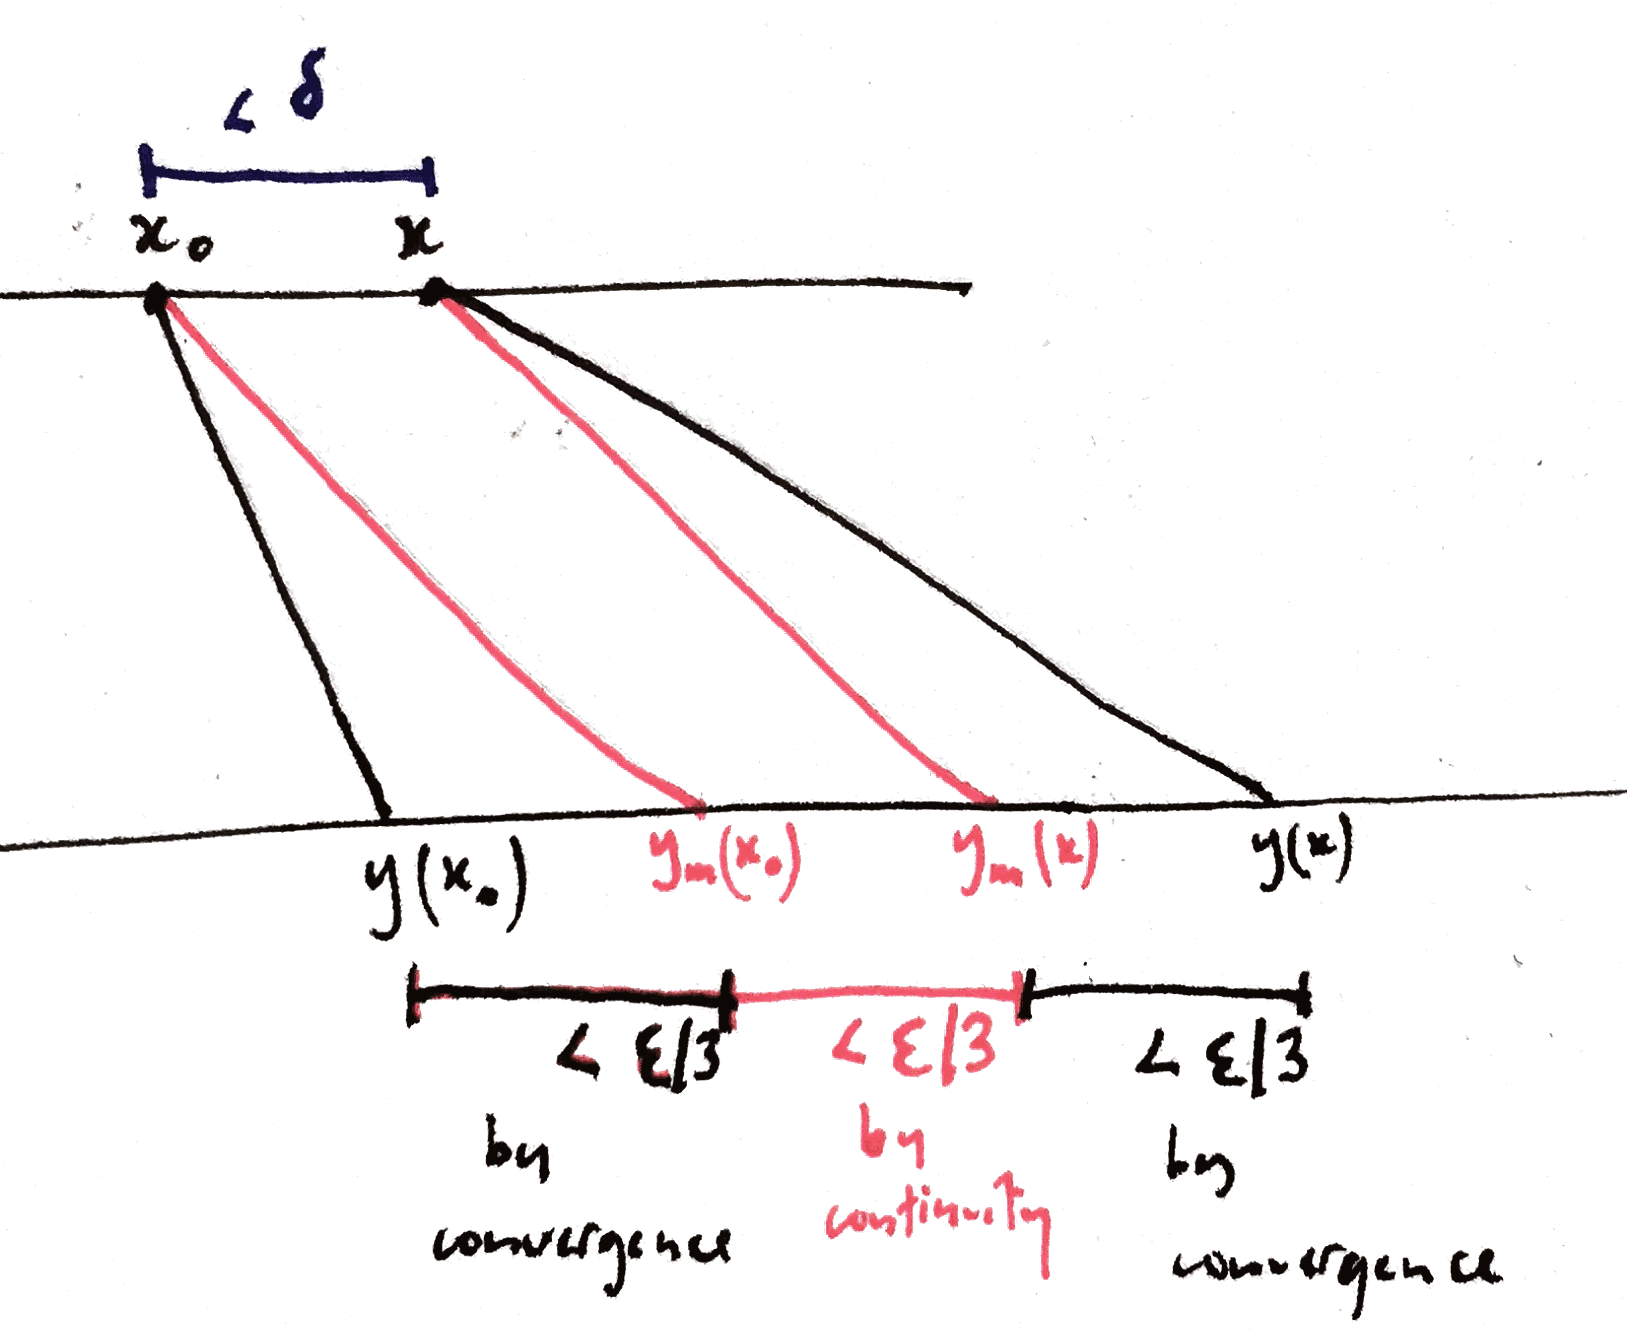 < δ
x₀ x
y(x₀) yₘ(x₀) yₘ(x) y(x)
< ε/3 < ε/3 < ε/3
by by by
convergence continuity convergence